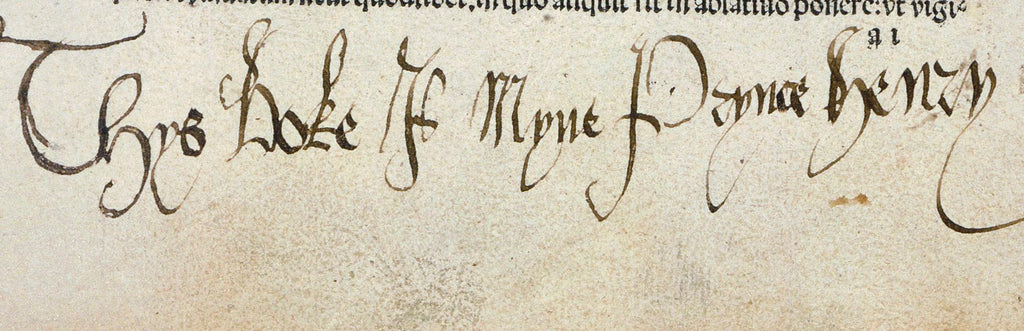 in quo aliquit sit in ablatiuo ponere: vt vigi⸗
a i
Thys boke Is Myne Prynce Henry